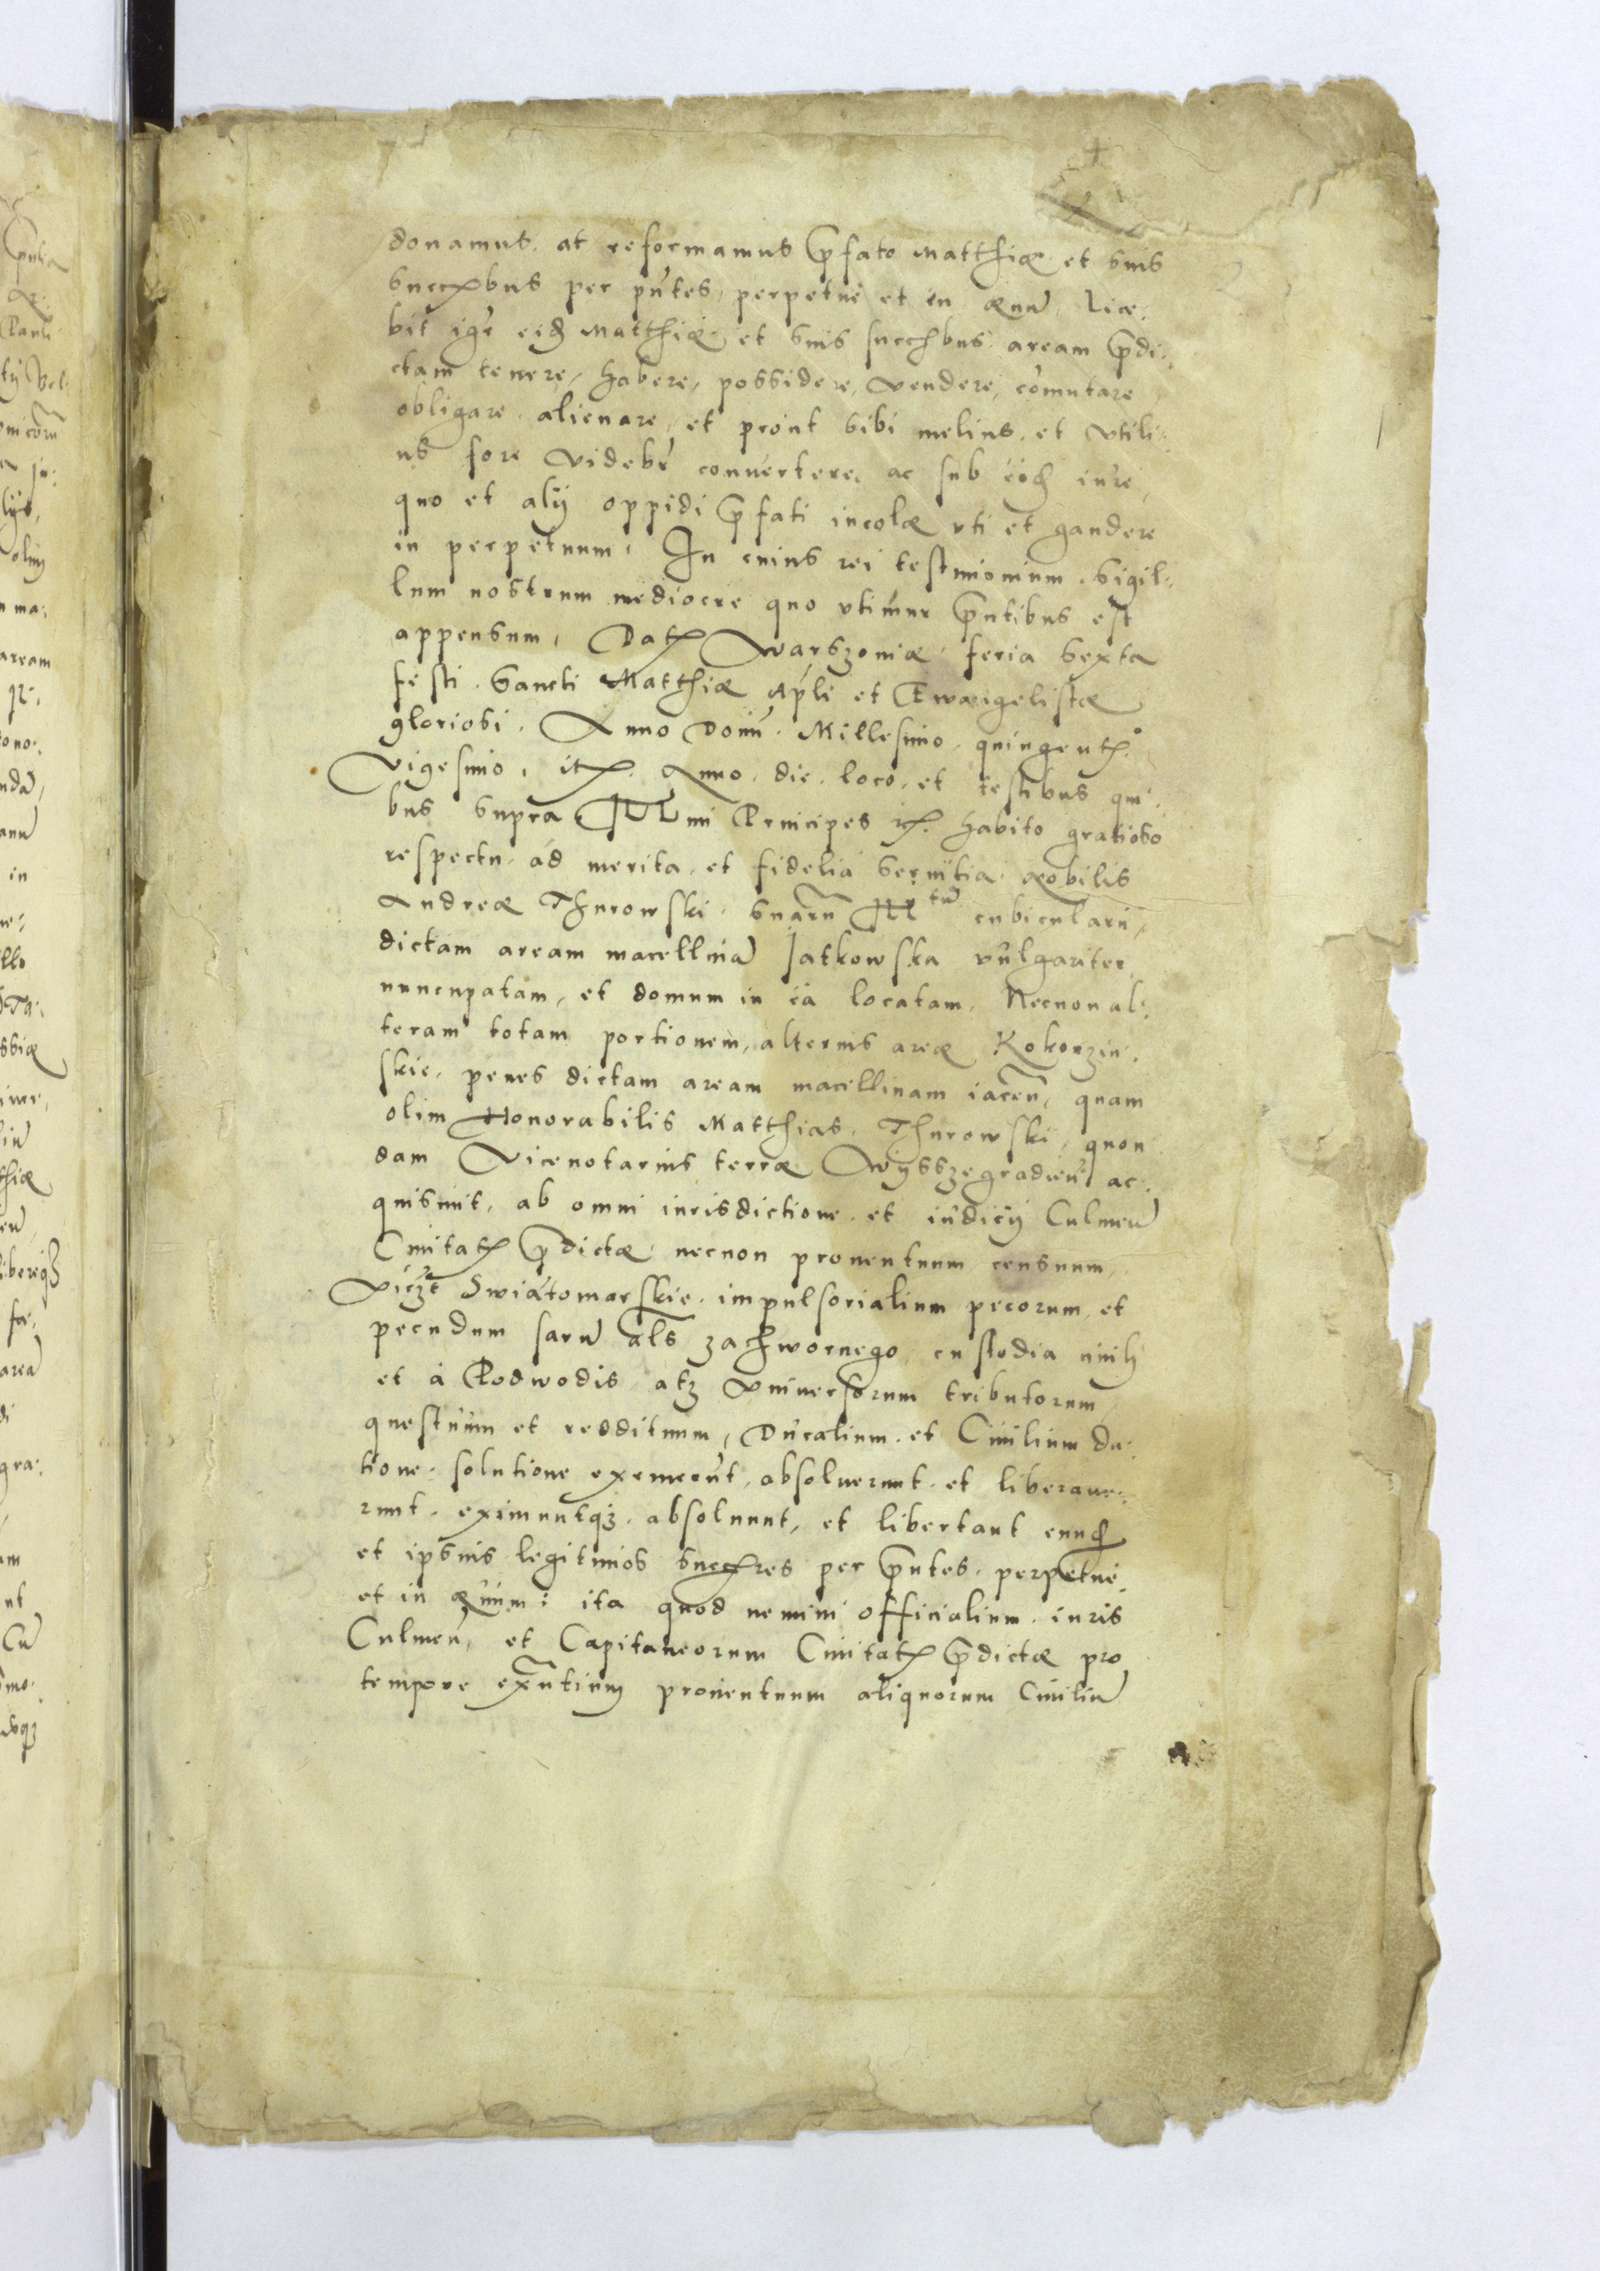 donamus. at reformamus p̃fato Matthiæ et suis
succ̃bus per pñtes, perpetue et in æuũ, lice:
bit igr̃ eidẽ Matthiæ et suis succ̃bus aream p̃di:
ctam tenere, habere, possidere, vendere, com̃utare
obligare, alienare, et prout sibi melius, et vtili:
us fore videbr̃ conuertere, ac sub eodẽ iure,
quo et alij oppidi p̃fati incolæ vti et gaudere
in perpetuum. In cuius rei testimonium. Sigil:
lum nostrum mediocre quo vtimur p̃ntibus est
appensum. Datũ Warszoviæ. feria sexta
festi. Sancti Matthiæ Ap̃li et Ewangelistæ
gloriosi. Anno Domĩ. Millesimo. quingentõ.
Vigesimo, itẽ. Anno. die. loco. et testibus qui:
bus supra Ill̃mi Principes etc. habito gratioso
respectu. ad merita. et fidelia seruitia. nobilis
Andreæ Thurowski. suarũ Ill tũ cubicularij,
dictam aream macellinã Jatkowska vulgariter
nuncupatam, et domum in ea locatam. Necnon al:
teram totam portionem, alterius areæ Kokorzin:
skie. penes dictam aream macellinam iacen̄, quam
olim Honorabilis Matthias. Thurowski. quon
dam Vicenotarius terræ Wyszegradien̄ ac:
quisiuit. ab omni iurisdictione. et iudicij Culmen̄
Ciuitatis p̃dictæ. necnon prouentuum censuum,
vicz̃t Swiatomarskie. impulsorialium pecorum. et
pecudum sarũ al̃s zachwornego, custodia
et a Podwodis, atq̃ vniuersorum tributorum,
questuum et reddituum, Ducalium. et Ciuilium da:
tione. solutione exemerũt. absoluerunt. et liberaue:
runt. eximuntq̃. absoluunt, et libertant eundẽ
et ipsius legitimos succ̃res per p̃ntes. perpetue
et in æuum: ita quod nemini officialium. iuris
Culmen̄, et Capitaneorum Ciuitatis p̃dictæ pro
tempore ex̃ntium prouentuum aliquorum Ciuiliũ